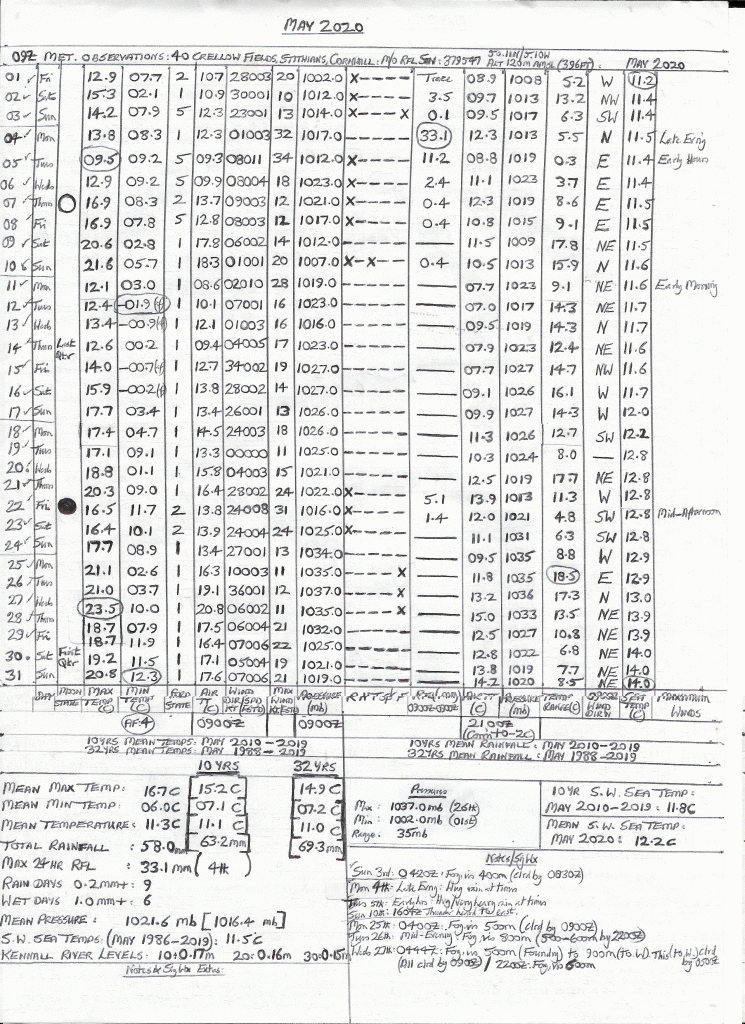 MAY 2020
09Z MET. OBSERVATIONS: 40 CRELLOW FIELDS, STITHIANS, CORNWALL: M/O RFL STN: 379547 50.11N/5.10W ALT 120m AMSL (396FT): MAY 2020
01 Fri 12.9 07.7 2 10.7 28003 20 1002.0 X---- Trace 08.9 1008 5.2 W 11.2
02 Sat 15.3 02.1 1 10.9 30001 10 1012.0 X---- 3.5 09.7 1013 13.2 NW 11.4
03 Sun 14.2 07.9 5 12.3 23001 13 1014.0 X---X 0.1 09.5 1017 6.3 SW 11.4
04 Mon 13.8 08.3 1 12.3 01003 32 1017.0 ----- 33.1 12.3 1013 5.5 N 11.5 Late Ev'ng
05 Tues 09.5 09.2 5 09.3 08011 34 1012.0 X---- 11.2 08.8 1019 0.3 E 11.4 Early Hours
06 Weds 12.9 09.2 5 09.9 08004 18 1023.0 X---- 2.4 11.1 1023 3.7 E 11.4
07 Thurs 16.9 08.3 2 13.7 09003 12 1021.0 X---- 0.4 12.3 1019 8.6 E 11.5
08 Fri 16.9 07.8 5 12.8 08003 12 1017.0 X---- 0.4 10.8 1015 9.1 E 11.5
09 Sat 20.6 02.8 1 17.8 06002 14 1012.0 ----- — 11.5 1009 17.8 NE 11.5
10 Sun 21.6 05.7 1 18.3 01001 20 1007.0 X-X-- 0.4 10.5 1013 15.9 N 11.6
11 Mon 12.1 03.0 1 08.6 02010 28 1019.0 ----- — 07.7 1023 9.1 NE 11.6 Early Morning
12 Tues 12.4 -01.9(f) 1 10.1 07001 16 1023.0 ----- — 07.0 1017 14.3 NE 11.7
13 Weds 13.4 -00.9(f) 1 12.1 01003 16 1016.0 ----- — 09.5 1019 14.3 N 11.7
14 Thurs Last Qtr 12.6 00.2 1 09.4 04005 17 1023.0 ----- — 07.9 1023 12.4 NE 11.6
15 Fri 14.0 -00.7(f) 1 12.7 34002 19 1027.0 ----- — 07.7 1027 14.7 NW 11.6
16 Sat 15.9 -00.2(f) 1 13.8 28002 14 1027.0 ----- — 09.1 1026 16.1 W 11.7
17 Sun 17.7 03.4 1 13.4 26001 13 1026.0 ----- — 09.9 1027 14.3 W 12.0
18 Mon 17.4 04.7 1 14.5 24003 18 1026.0 ----- — 11.3 1026 12.7 SW 12.2
19 Tues 17.1 09.1 1 13.3 00000 11 1025.0 ----- — 10.3 1024 8.0 — 12.8
20 Weds 18.8 01.1 1 15.8 04003 15 1021.0 ----- — 12.5 1019 17.7 NE 12.8
21 Thurs 20.3 09.0 1 16.4 28002 24 1022.0 X---- 5.1 13.9 1013 11.3 W 12.8
22 Fri 16.5 11.7 2 13.8 24008 31 1016.0 X---- 1.4 12.0 1021 4.8 SW 12.8 Mid-Afternoon
23 Sat 16.4 10.1 2 13.9 24004 24 1025.0 X---- — 11.1 1031 6.3 SW 12.8
24 Sun 17.7 08.9 1 13.4 27001 13 1034.0 ----- — 09.5 1035 8.8 W 12.9
25 Mon 21.1 02.6 1 16.3 10003 11 1035.0 ----X — 11.8 1035 18.5 E 12.9
26 Tues 21.0 03.7 1 19.1 36001 12 1037.0 ----X — 13.2 1036 17.3 N 13.0
27 Weds 23.5 10.0 1 20.8 06002 11 1035.0 ----X — 15.0 1033 13.5 NE 13.9
28 Thurs 18.7 07.9 1 17.5 06004 21 1032.0 ----- — 12.5 1027 10.8 NE 13.9
29 Fri 18.7 11.9 1 16.4 07006 22 1025.0 ----- — 12.8 1022 6.8 NE 14.0
30 Sat First Qtr 19.2 11.5 1 17.1 05004 19 1021.0 ----- — 13.8 1019 7.7 NE 14.0
31 Sun 20.8 12.3 1 17.6 07006 21 1019.0 ----- — 14.2 1020 8.5 NE 14.0
DAY MOON STATE MAX TEMP (C) MIN TEMP (C) GRND STATE AIR TT (C) WIND DIR/SPD KT (ESTD) MAX WIND KT (ESTD) PRESSURE (mb) R H T S F RFL (mm) 0900Z-0900Z AIR TT (C) PRESSURE (mb) TEMP RANGE (C) WIND DIRN SEA TEMP (C) MAXIMUM WINDS
AF:4 0900Z 0900Z 2100Z
10YRS MEAN TEMPS: MAY 2010-2019 10YRS MEAN RAINFALL: MAY 2010-2019
32YRS MEAN TEMPS: MAY 1988-2019 32YRS MEAN RAINFALL: MAY 1988-2019
10 YRS 32 YRS
MEAN MAX TEMP: 16.7C 15.2C 14.9C
MEAN MIN TEMP: 06.0C 07.1C 07.2C
MEAN TEMPERATURE: 11.3C 11.1C 11.0C
TOTAL RAINFALL: 58.0mm 63.2mm 69.3mm
MAX 24HR RFL 33.1mm (4th)
RAIN DAYS 0.2mm+: 9
WET DAYS 1.0mm+: 6
MEAN PRESSURE: 1021.6 mb [1016.4 mb]
S.W. SEA TEMPS: (MAY 1986-2019): 11.5C
KENNALL RIVER LEVELS: 10: 0.17m 20: 0.16m 30: 0.15m
Notes & Sig Wx Extras:
Pressures
Max: 1037.0mb (26th)
Min: 1002.0mb (01st)
Range: 35mb
10YR S.W. SEA TEMP:
MAY 2010-2019: 11.8C
MEAN S.W. SEA TEMP:
MAY 2020: 12.2C
Notes/Sig Wx
Sun 3rd: 0420Z: Fog, vis 400m (clrd by 0830Z)
Mon 4th: Late Ev'ng: Hvy rain at times
Tues 5th: Early hrs: Hvy/Very heavy rain at times
Sun 10th: 1604Z Thunder heard to East.
Mon 25th: 0400Z: Fog, vis 500m (clrd by 0900Z)
Tues 26th: Mid-Evening: Fog, vis 800m (500-600m by 2200Z)
Weds 27th: 0444Z: Fog, vis 500m (Foundry) to 900m (to W). This (to W.) clrd by 0505Z
(All clrd by 0900Z) / 2200Z: Fog, vis 600m